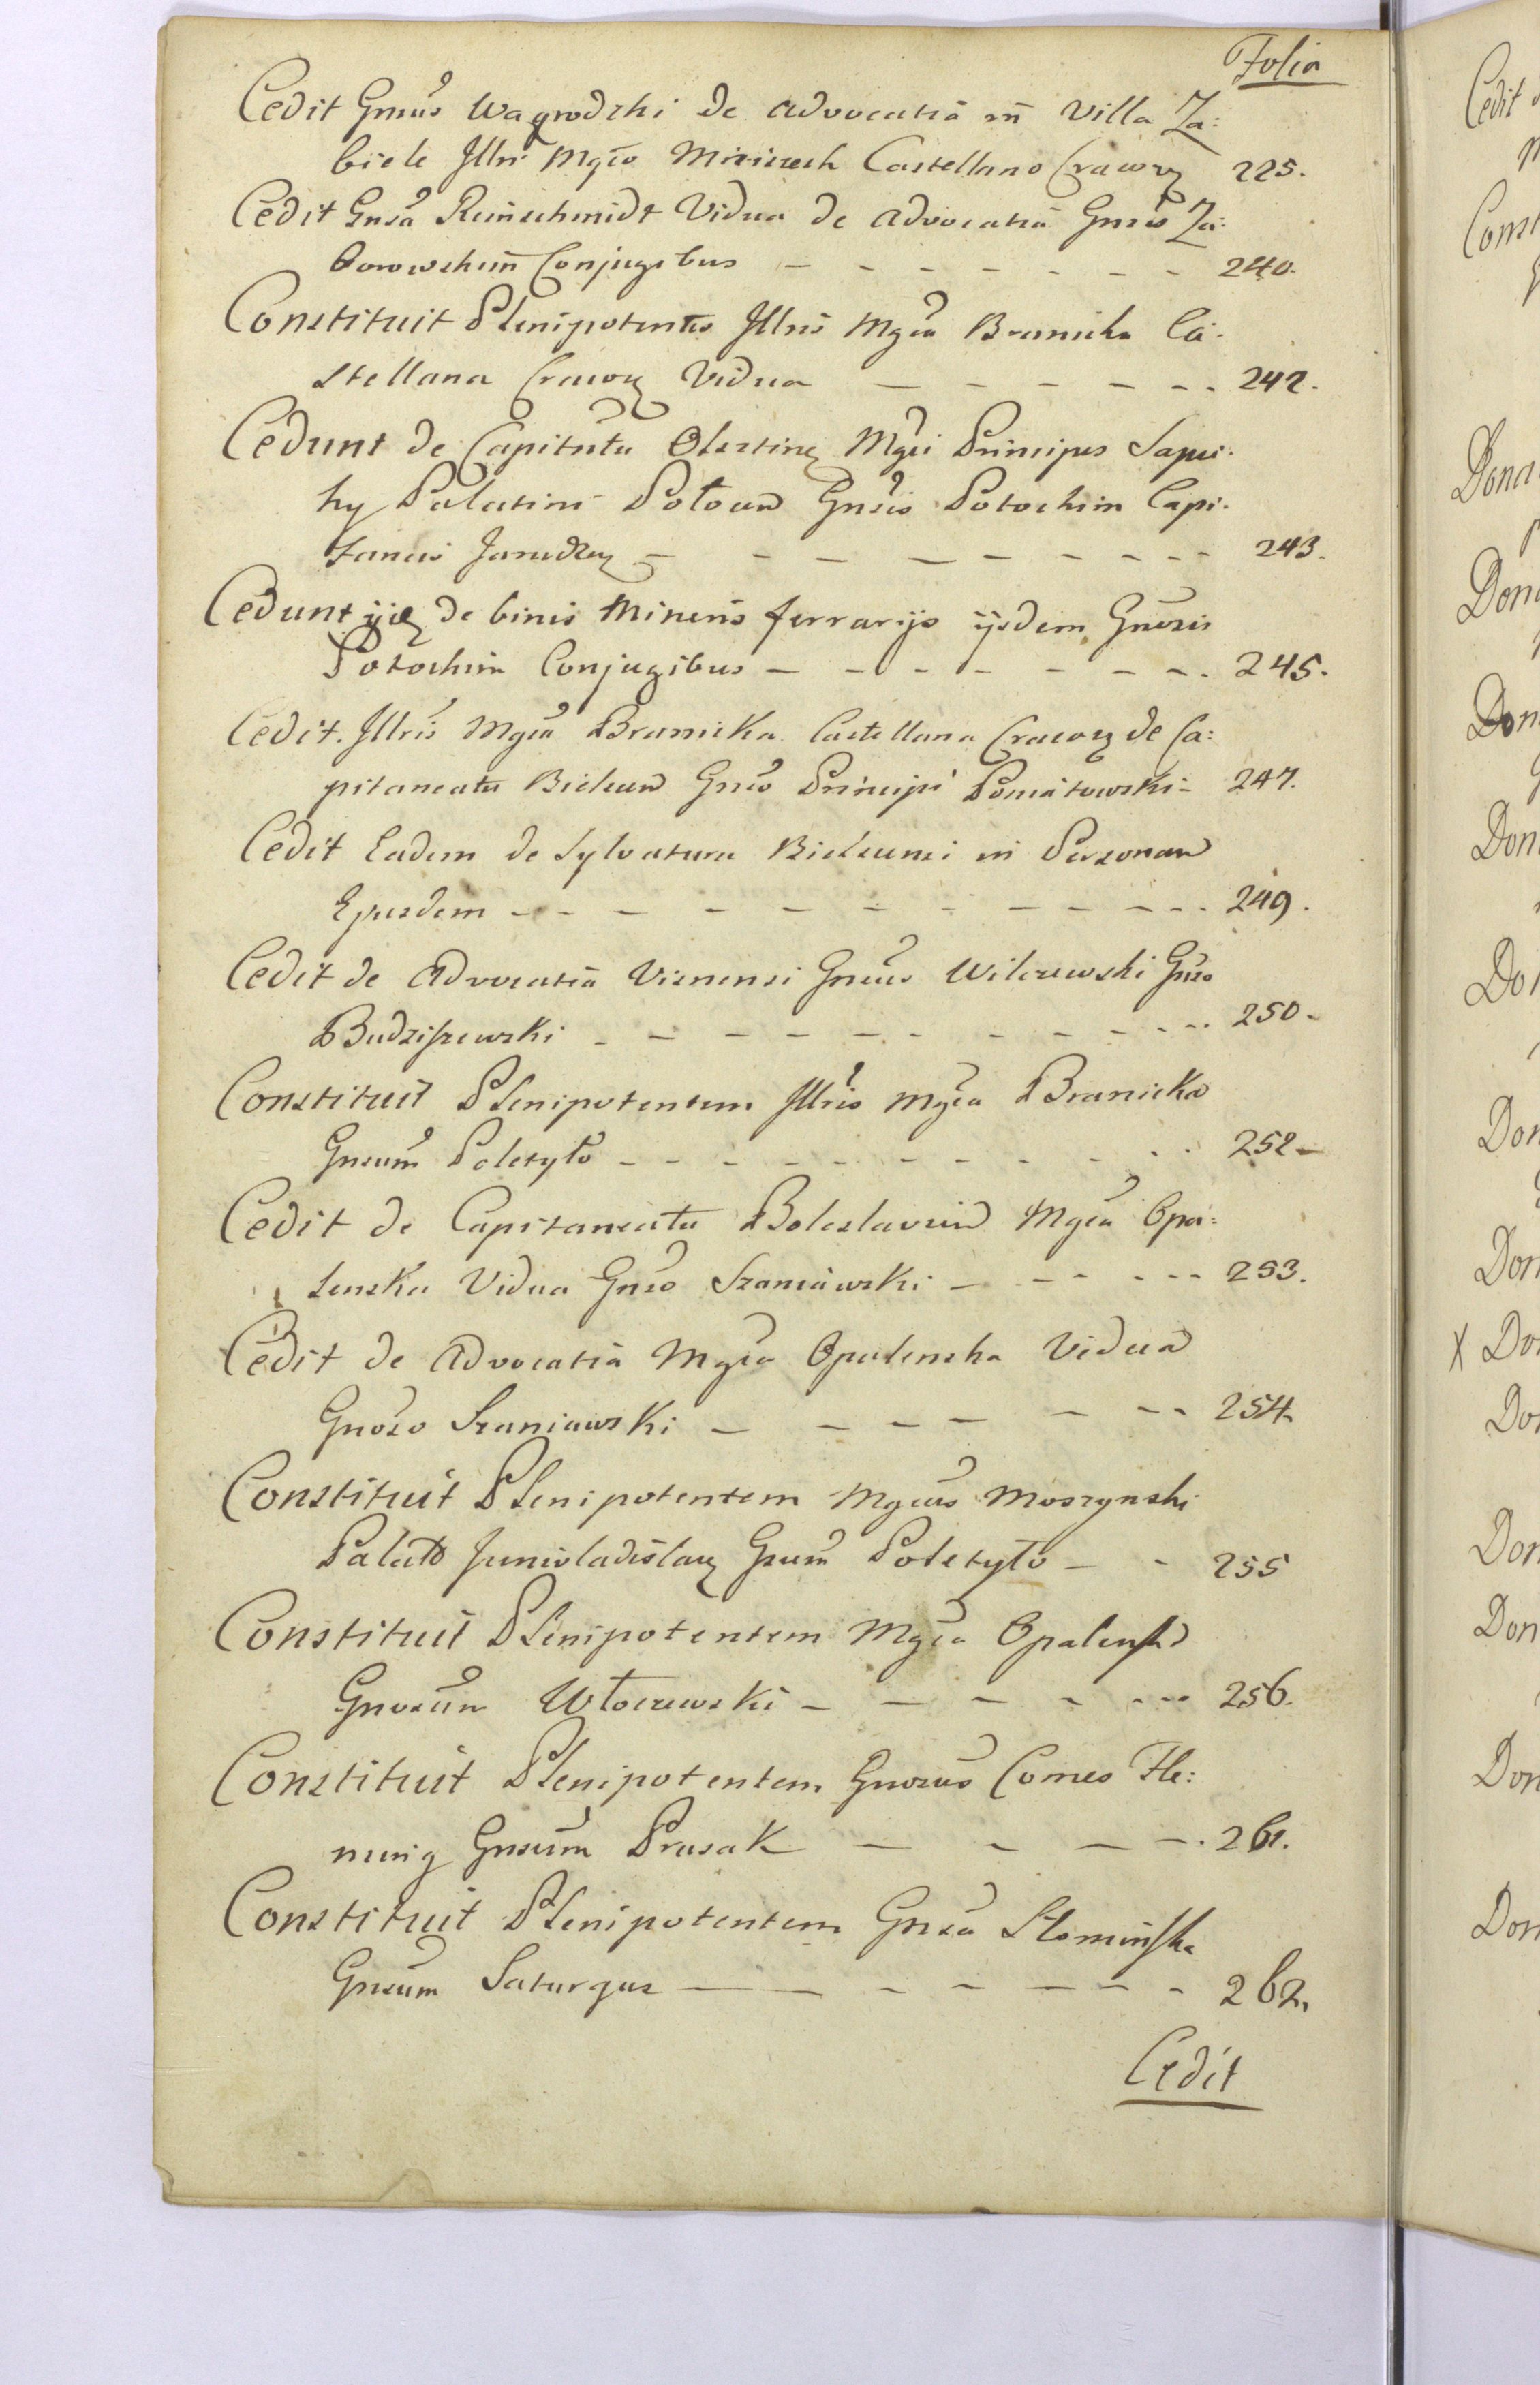 Folia
Cedit Gnsus Wagrodzki de advocatia in Villa Za:
biele Illri Mgco Mniszech Castellano Cracovz 225.
Cedit Gnsa Reinschmidt Vidua de advocatia Gnsis Za:
borowskim Conjugibus - - - - - - - 240.
Constituit Plenipotentes Illris Mgca Branicka Ca:
stellana Cracovz Vidua - - - - - - 242.
Cedunt de Mgci Principes Sapie:
hy Palatini Polocen Gnsis Potockim Capi:
taneis - - - - - - - - - 243.
Cedunt ijdz de binis Mineris ferrarijs ijsdem Gnosis
Potockim Conjugibus - - - - - - - - 245.
Cedit Illris Mgca Branicka Castellana Cracovz de Ca:
pitaneatu Bielscen Gnso Principi Poniatowski - 247.
Cedit Eadem de Sylvatura Bielscensi in Personam
Ejusdem - - - - - - - - - - - 249.
Cedit de Advocatia Visnensi Gnsus Wilczewski Gnso
Budziszewski - - - - - - - - - - - 250.
Constituit Plenipotentem Illris Mgca Branicka
Gnsum Poletyło - - - - - - - - - - 252 -
Cedit de Capitaneatu Boleslavien Mgca Opa:
lenska Vidua Gnso Szaniawski - - - - - - 253.
Cedit de Advocatia Mgca Opalenska Vidua
Gnoso Szaniawski - - - - - - - 254.
Constituit Plenipotentem Mgcus Moszynski
Palatid Junivladislavz Gnsum Poletyło - - 255
Constituit Plenipotentem Mgca Opalenska
Gnosum Włoczewski - - - - - - - 256.
Constituit Plenipotentem Gnosus Comes Fle:
ming Gnsum Prusak - - - - . 261.
Constituit Plenipotentem Gnsa Słominska
Gnsum Saturgus - - - - - - - - 262.
Cedit